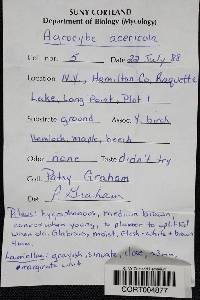 SUNY CORTLAND
Department of Biology (Mycology)
Agrocybe acericola
Coll. no. 5 Date 22 July 88
Location N.Y., Hamilton Co, Raquette
Lake, Long Point, Plot 1
Substrate ground Assoc. Y. birch
Hemlock, maple, beech
Odor none Taste didn't try
Coll. Patsy Graham
Det. P. Graham
Pileus: hygrophanous, medium brown,
convex when young, to planar to uplifted
when old. Glabrous, moist. Flesh - white + brown
4mm.
Lamellae: grayish, sinuate,
marginate white
SUNY Cortland
CORT004877